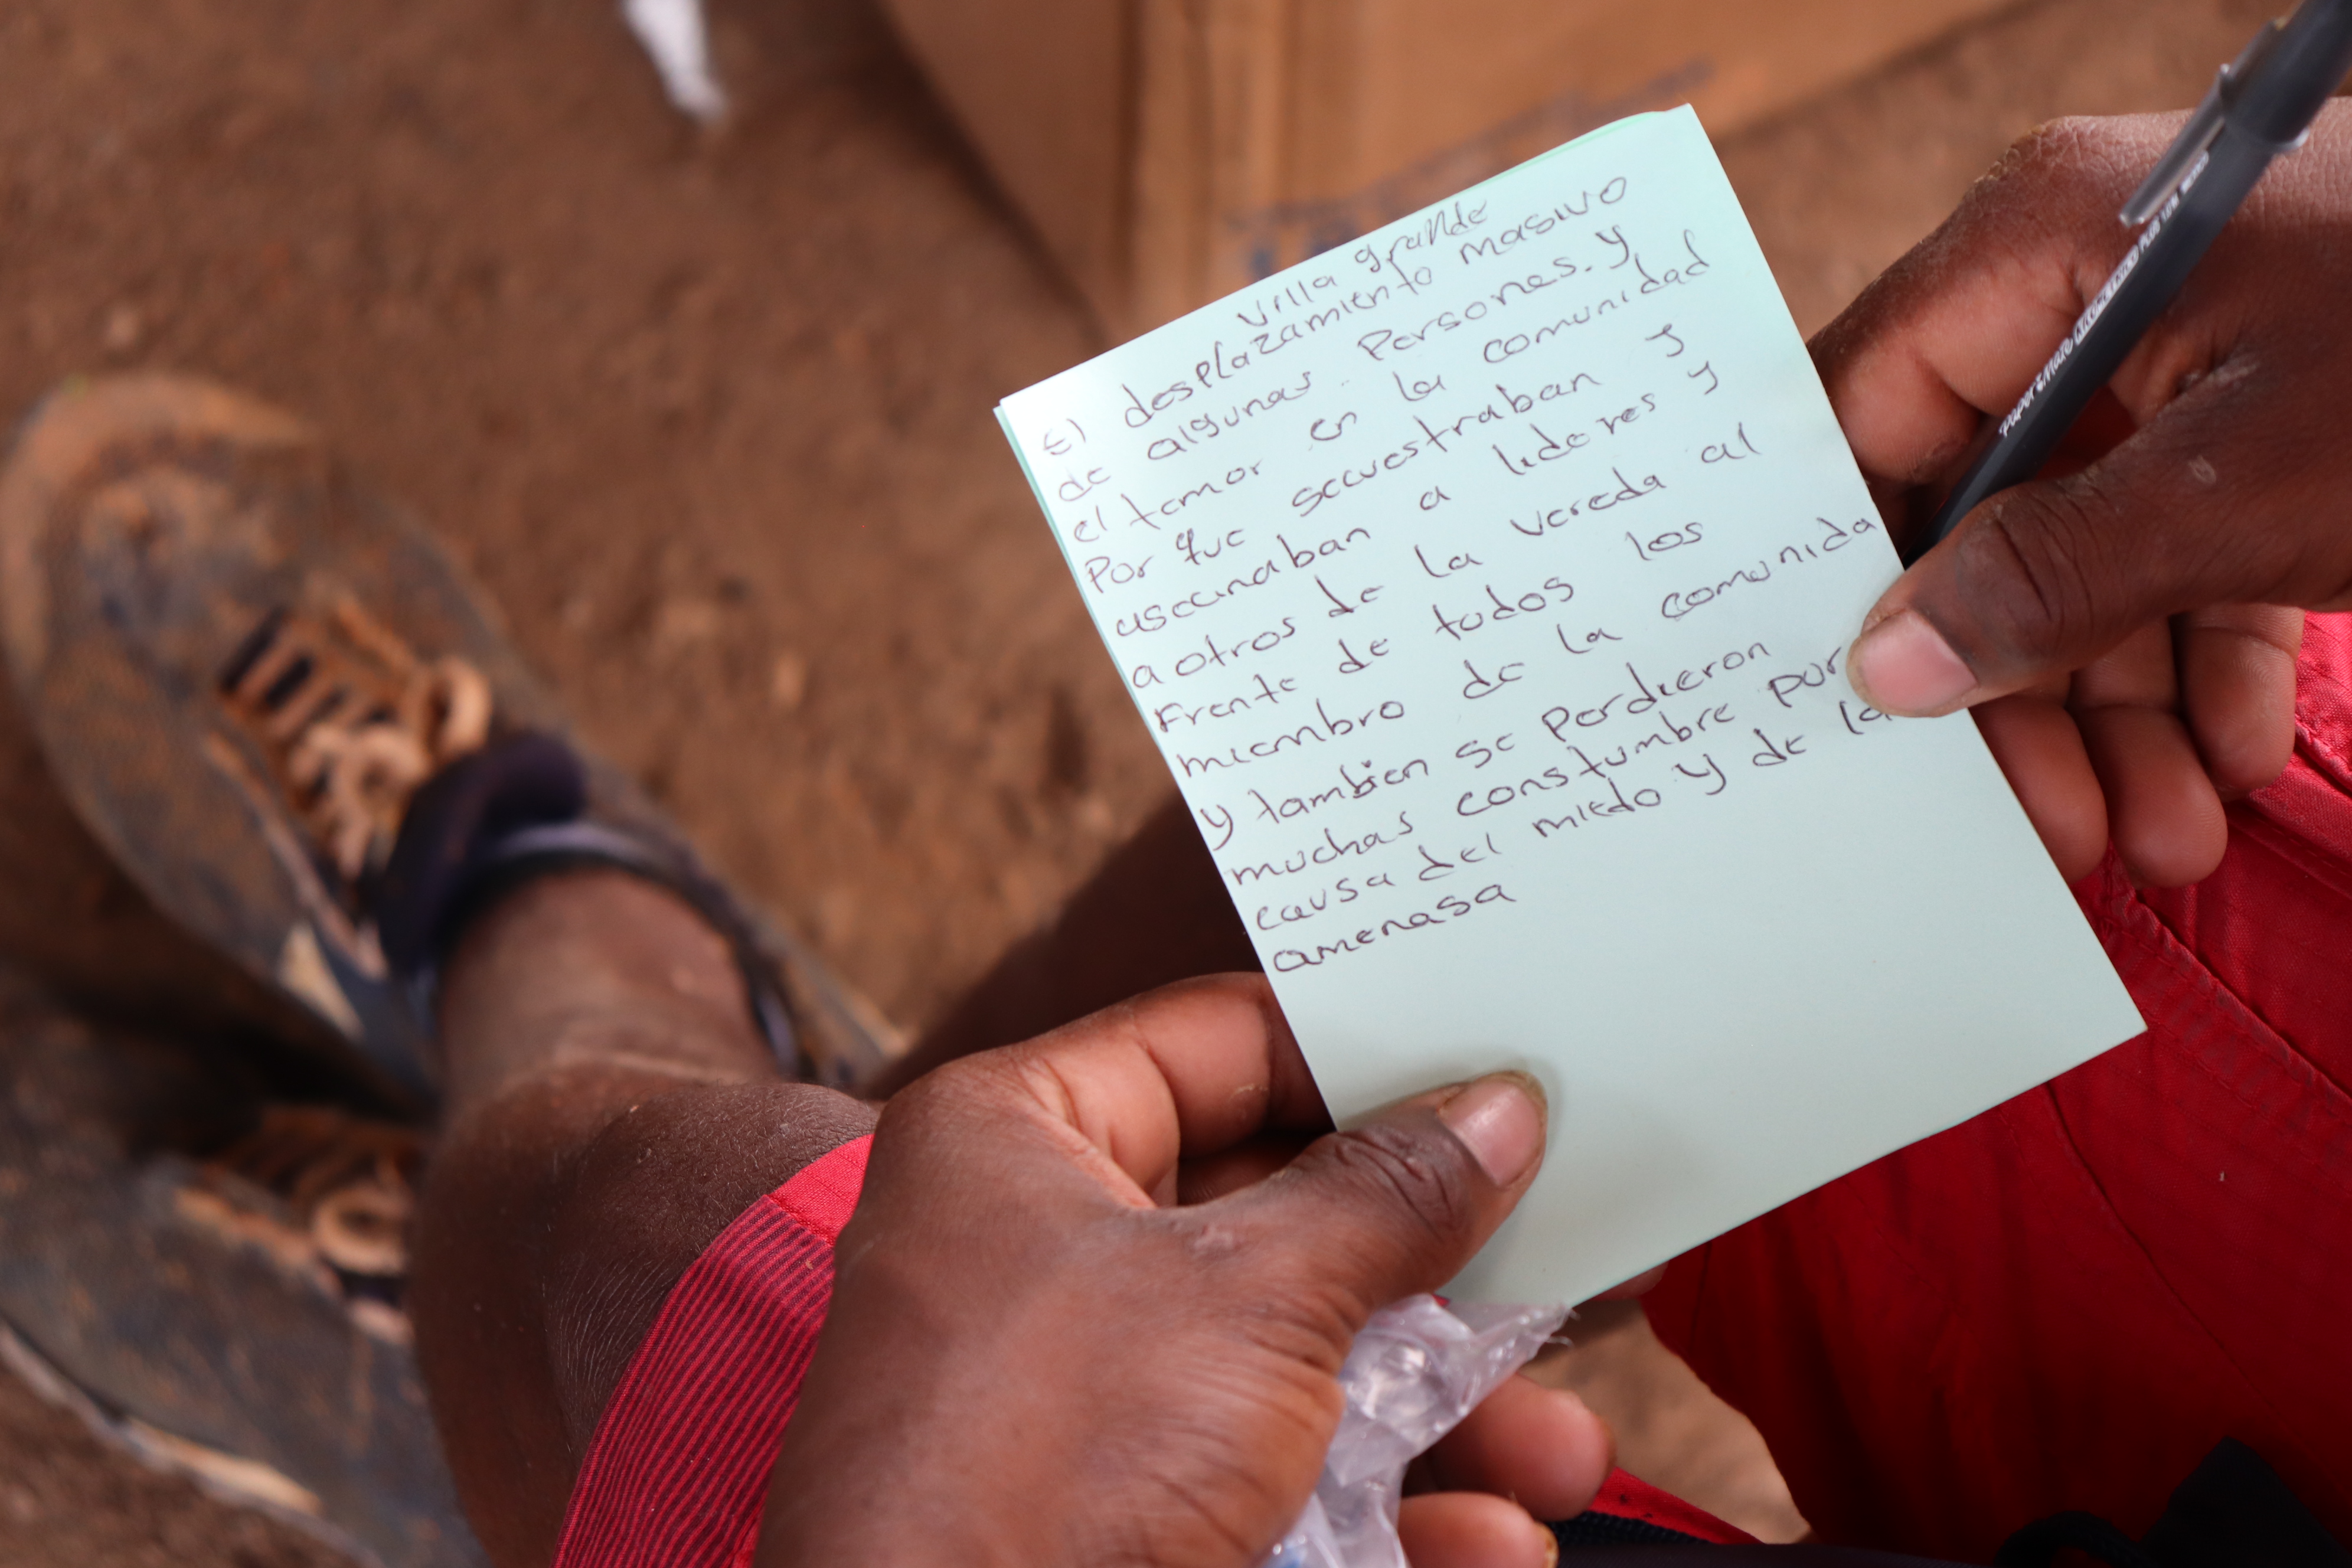 villa grande
El desplazamiento masivo
de algunas Persones. y
el temor en la comunidad
Por que secuestraban y
asecinaban a lideres y
a otros de la vereda al
Frente de todos los
miembro de la comunida
y tambien se perdieron
muchas constumbre por
causa del miedo y de la
amenasa
Paper Mate